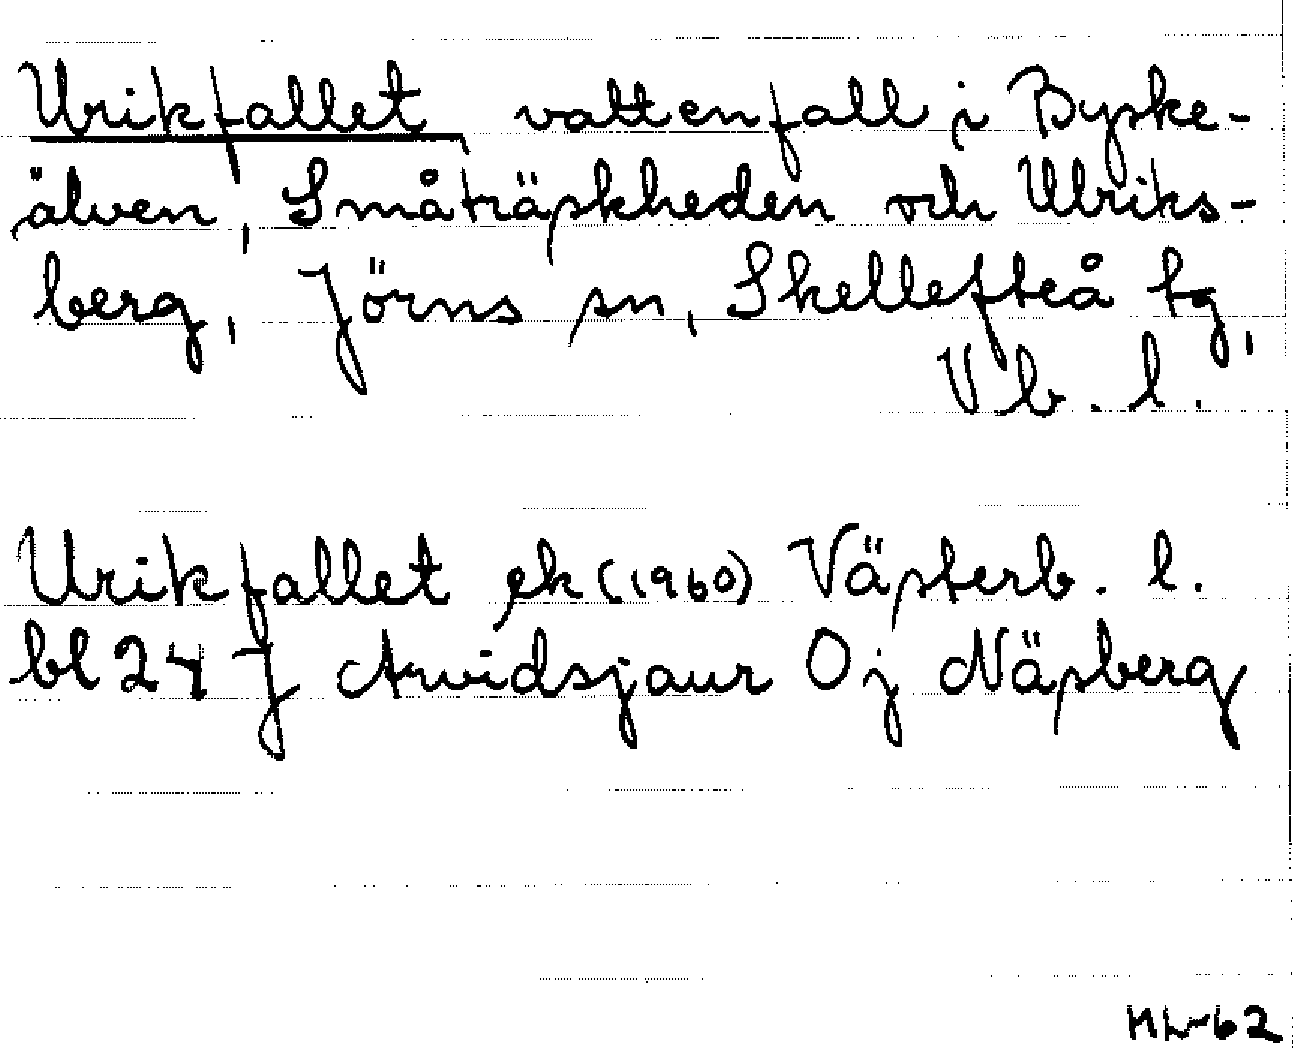 Urikfallet vattenfall i Byske-
älven, Småträskheden och Ulriks-
berg, Jörns sn, Skellefteå tg,
Vb. l.
Urikfallet ek (1960) Västerb. l.
bl 24 J Arvidsjaur Oj Näsberg
ML-62